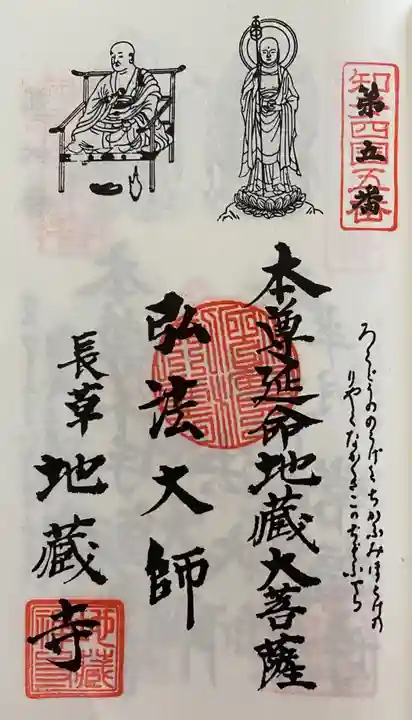 知多四国五番
第五番
ろくどうののうげをちかふみほとけの
りやくながくさこの
本尊延命地蔵大菩薩
弘法大師
長草地蔵寺